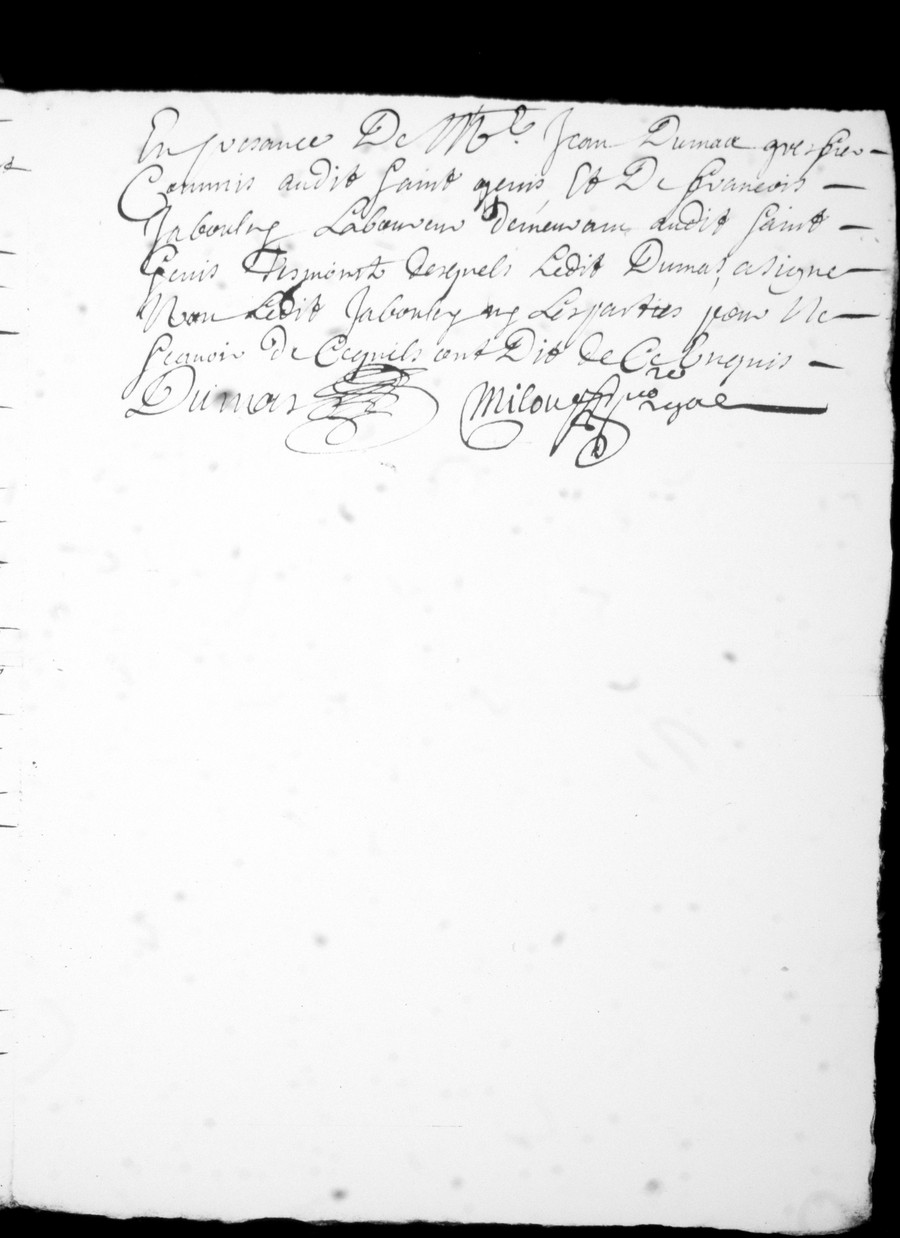 En presance De Mre Jean Dumas greffier
Commis audit Saint genis Et De francois
Jabouley Laboureur demeurant audit Saint
Genis Tesmoins desquels Ledit Dumas a signe
Non Ledit Jabouley ny Les parties pour Ne
Scavoir De Ce quils ont Dit de Ce Enquis
Dumas Milou nore royal